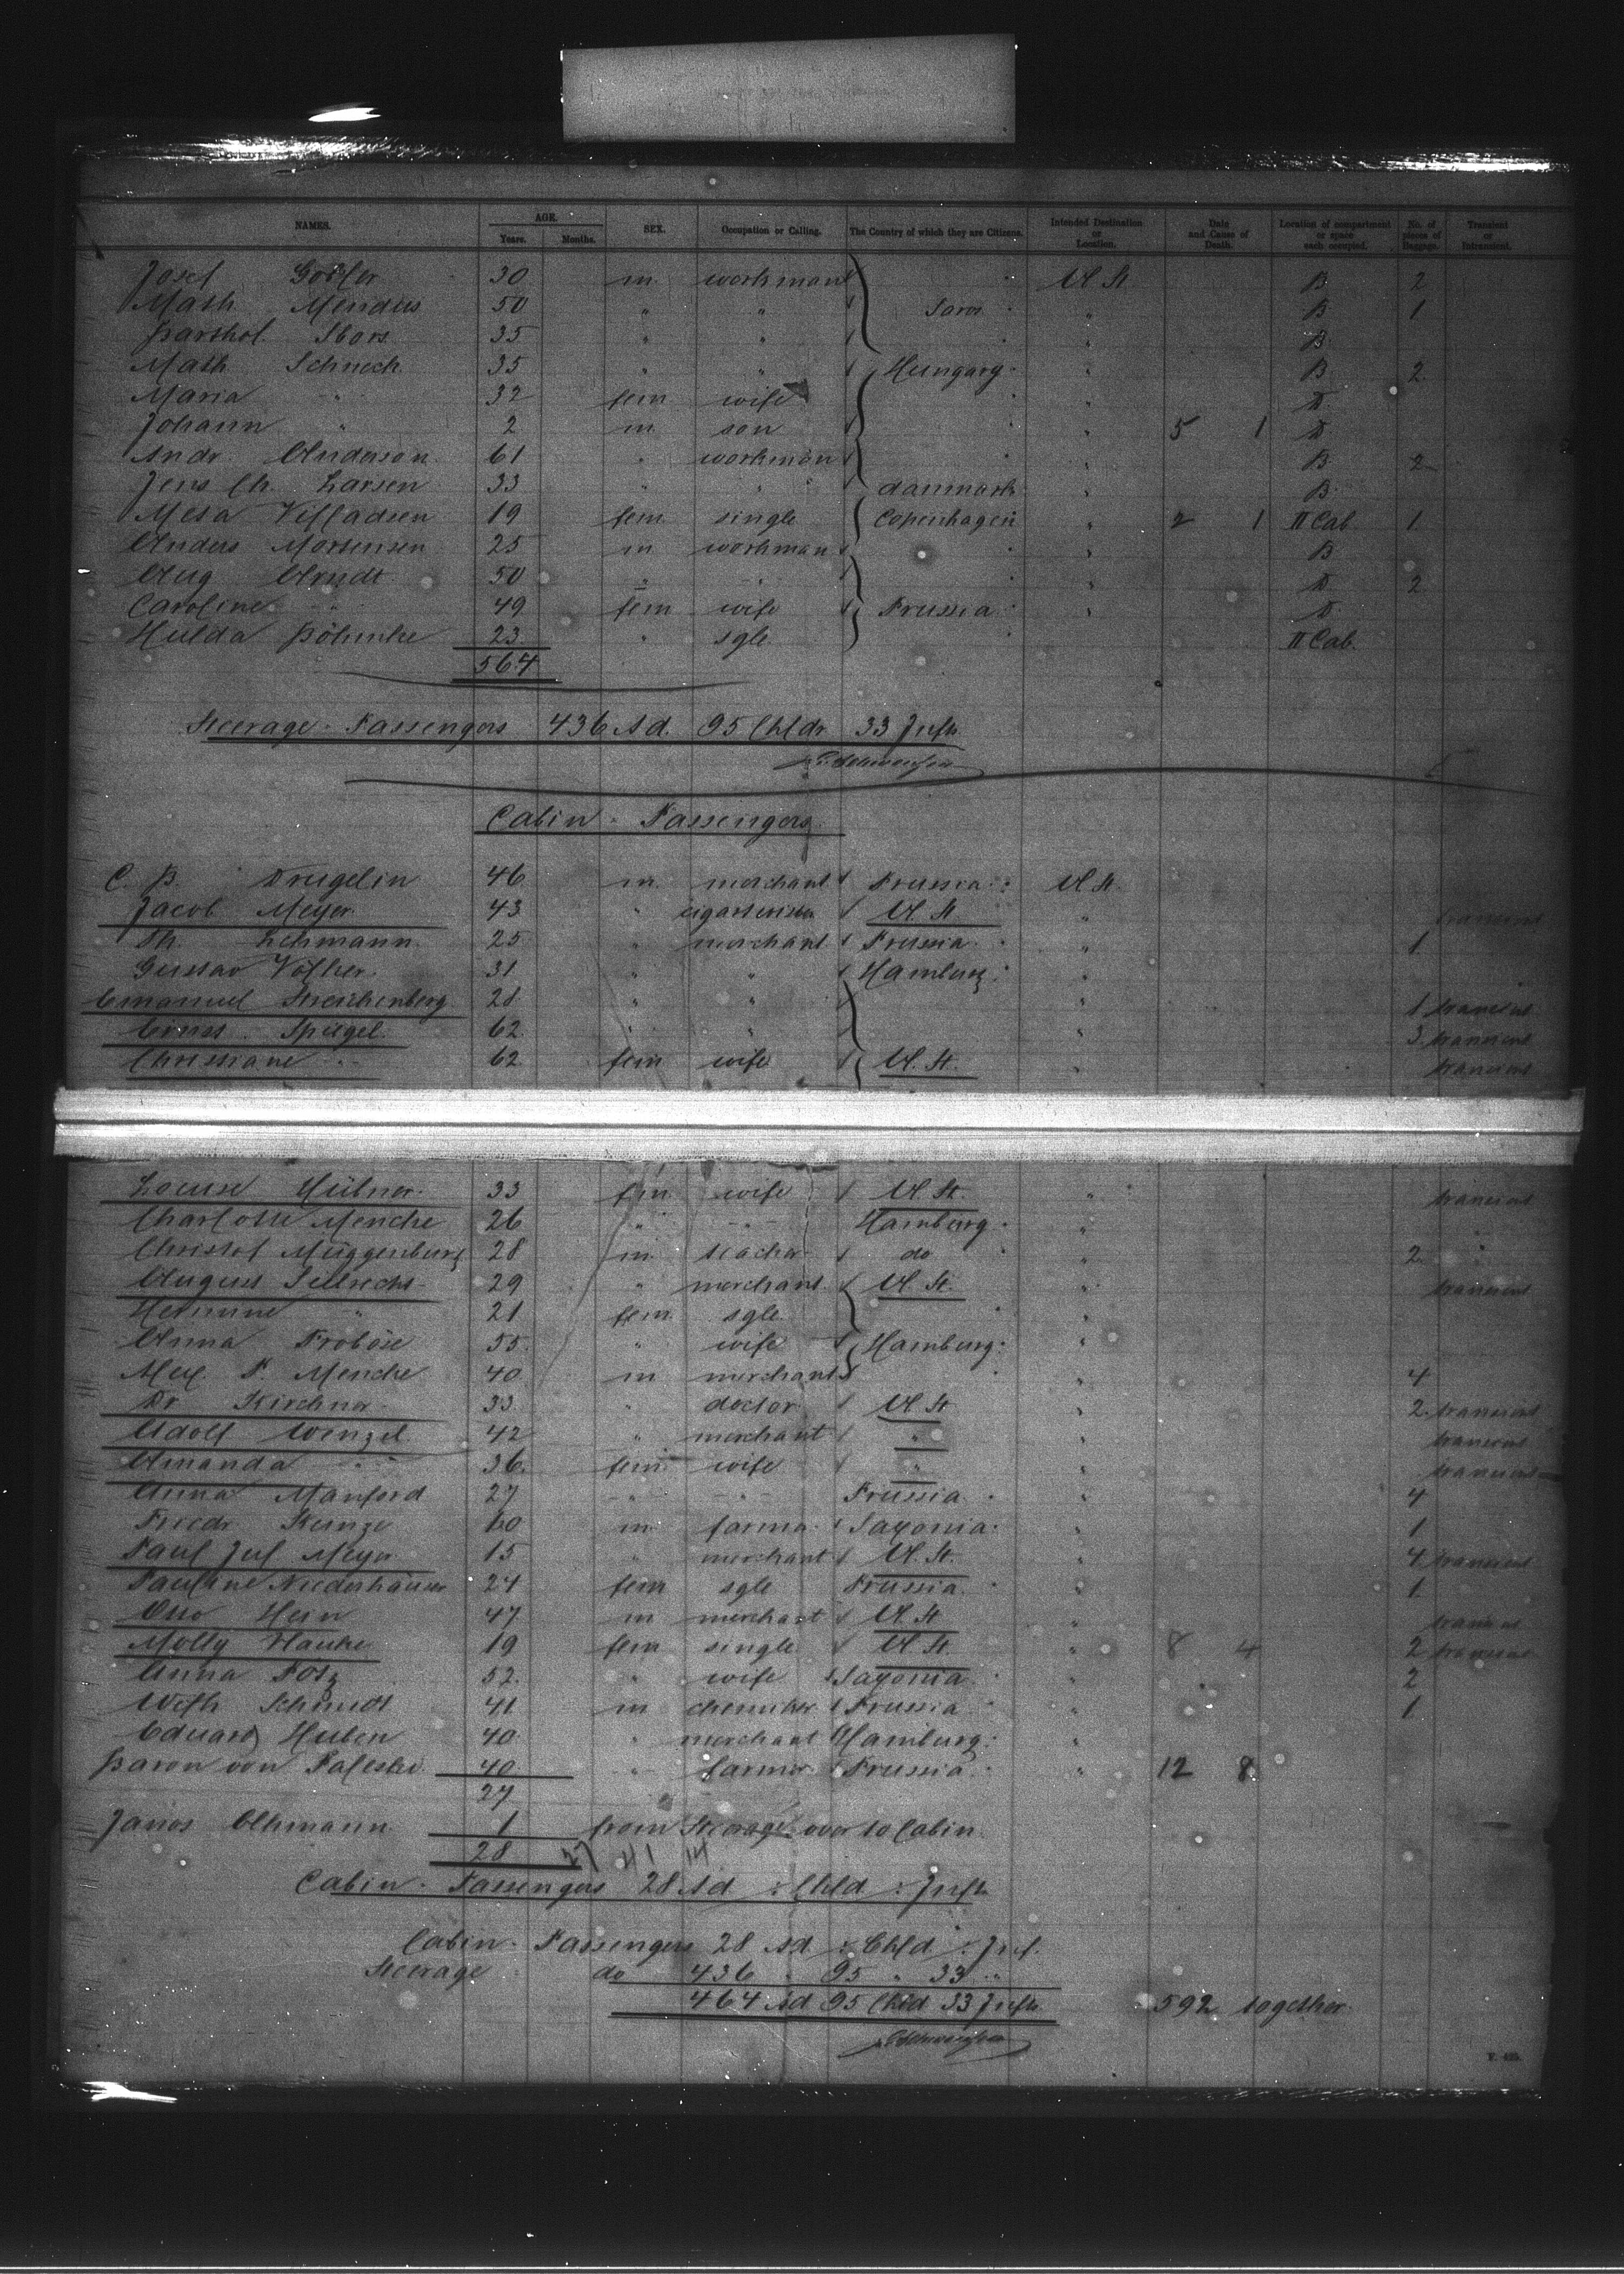 NAMES. AGE. SEX. Occupation or Calling. The Country of which they are Citizens. Intended Destination or Location. Date and Cause of Death. Location of compartment or space each occupied. No. of pieces of Baggage. Transient or Intransient.
Years. Months.
Josef 30 m. workman U. St. B 2
Math. Mendus 50 " " Saros " B 1
Barthol. Sbors 35 " " B
Math. Schnech 35 " " Hungary " B 2
Maria " 32 fem. wife " D
Johann " 2 m son " 5 1 D
Andr. Anderson 61 " workman " B 2
Jens Ch. Larsen 33 " " danmark " B
Meta Villadsen 19 fem. single Copenhagen " 2 1 II Cab 1
Anders Mortensen 25 m workman " B
Aug. Arndt 50 " " " D 2
Caroline " 49 fem wife Prussia " D
Hulda Böhmke 23 " sgle II Cab.
564
Steerage - Passengers 436 Ad. 95 Chldr 33 Infts
Cabin - Passengers
C. B. Drugelin 46 m. merchant Prussia U. St.
Jacob Meyer 43 " U. St. " transient
Th. Lehmann 25 " merchant Prussia " 1
Gustav Völker 31 " " Hamburg "
Emanuel Streichenberg 28 " " " 1 transient
Ernst Spiegel 62 " " " 3 transient
Christiane " 62 fem wife U. St. " transient
Louise Hübner 33 fem wife U. St. " transient
Charlotte Mencke 26 " " Hamburg "
Christof Müggenburg 28 m teacher do " 2 "
August 29 " merchant U. St. " transient
Hermine " 21 fem. sgle "
Anna Froböse 55 " wife Hamburg "
Max P. Mencke 40 m merchant " 4
Dr. Kirchner 33 " doctor U. St. " 2 transient
Adolf Wenzel 42 " merchant " " transient
Amanda " 36 fem wife " " transient
Anna Manford 27 " " Prussia " 4
Friedr. Kunze 60 m farmer Saxonia " 1
Paul Jul. Meyer 15 " merchant U. St. " 4 transient
Pauline Niederhäuser 24 fem sgle Prussia " 1
Otto Hein 47 m merchant U. St. " transient
Molly Hauke 19 fem single U. St. " 8 4 2 transient
Anna 52 " wife Saxonia " 2
Wilh. Schmidt 41 m chemiker Prussia " 1
Eduard Huben 40 " merchant Hamburg "
Baron von 40 " farmer Prussia " 12 8
27
Janos 1 from Steerage over to Cabin
28 27 41 14
Cabin - Passengers 28 Ad : Chld : Infts
Cabin - Passengers 28 Ad : Chld : Inf.
Steerage do 436 " 95 " 33 "
464 Ad 95 Chld 33 Infts 592 together.